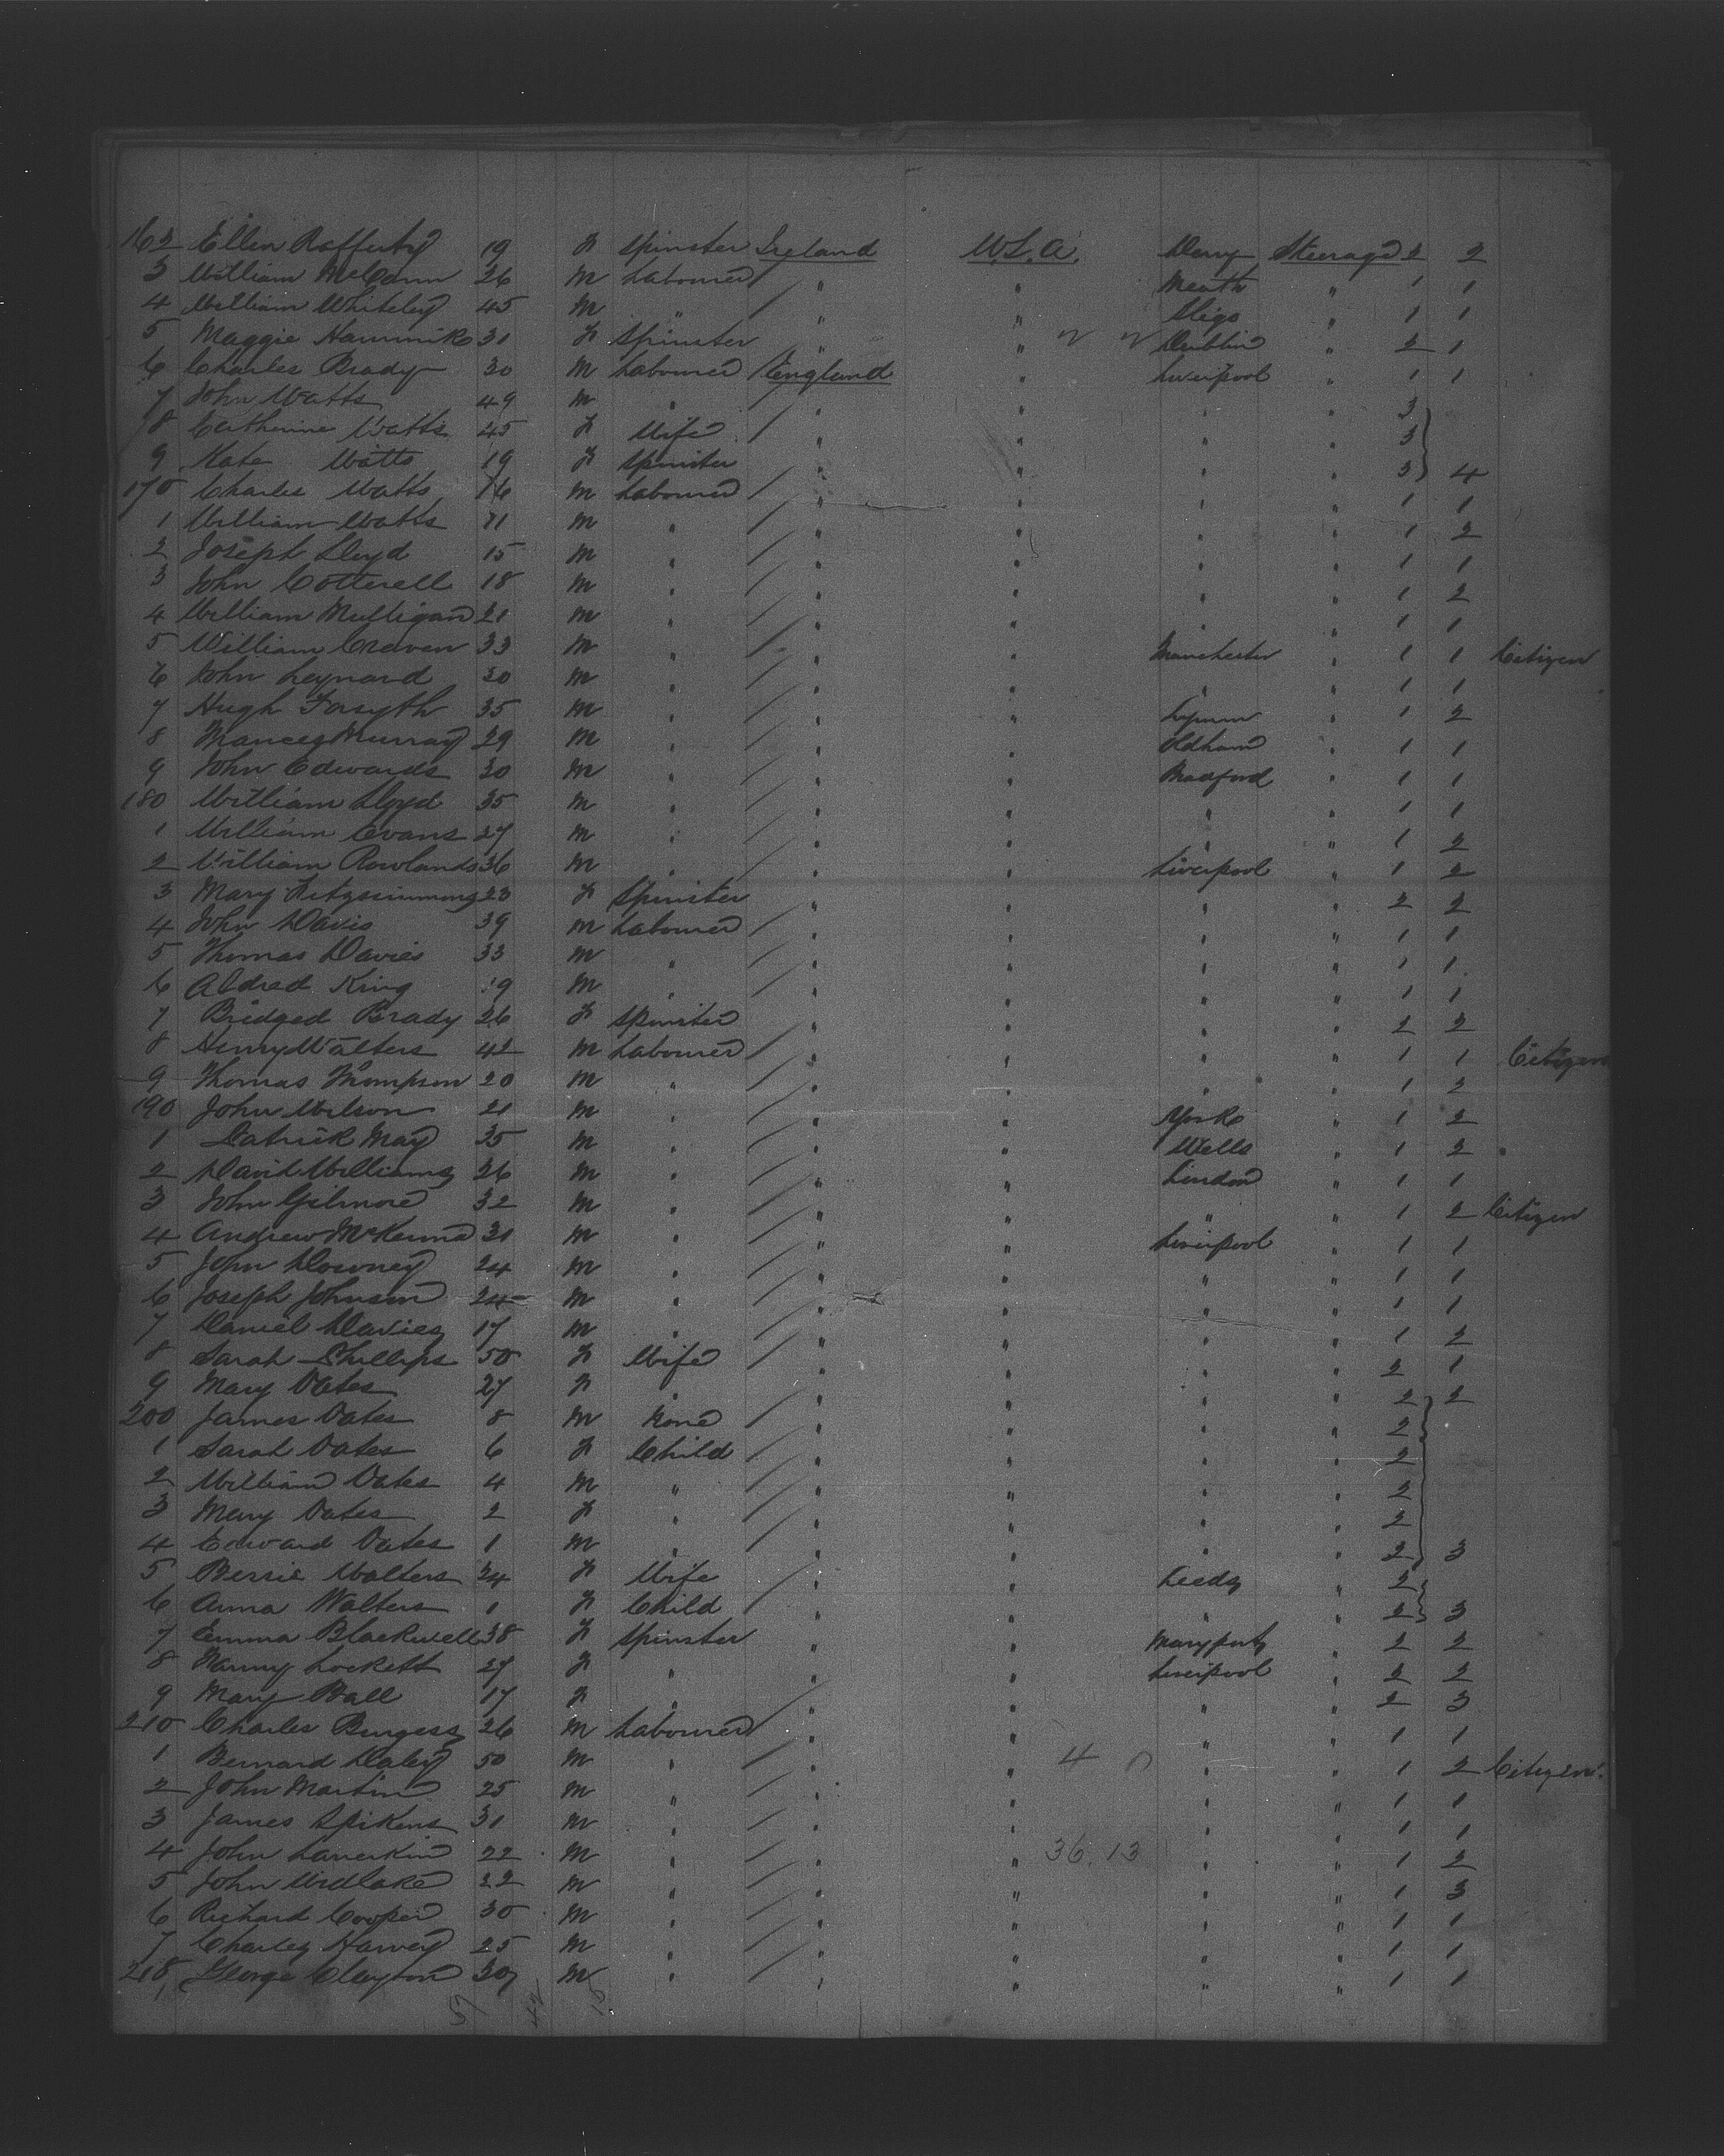 162 Ellen Rafferty 19 F Spinster Ireland U.S.A. Derry Steerage 2 2
3 William McCann 26 M Labourer " " Meath " 1 1
4 William Whiteley 45 M " " " Sligo " 1 1
5 Maggie 31 F Spinster " " Dublin " 2 1
6 Charles Brady 30 M Labourer England " Liverpool " 1 1
7 John Watts 49 M " " " " " 3
8 Catherine Watts 45 F Wife " " " " 3
9 Kate Watts 19 F Spinster " " " " 3 4
170 Charles Watts 16 M Labourer " " " " 1 1
1 William Watts M " " " " " 1 2
2 Joseph Lloyd 15 M " " " " " 1 1
3 John Cotterell 18 M " " " " " 1 2
4 William Mulligan 21 M " " " " " 1 1
5 William Craven 33 M " " " Manchester " 1 1 Citizen
6 John Leynard 30 M " " " " " 1 1
7 Hugh Forsyth 35 M " " " " 1 2
8 Murray 29 M " " " Oldham " 1 1
9 John Edwards 30 M " " " Bradford " 1 1
180 William Lloyd 35 M " " " " " 1 1
1 William Evans 27 M " " " " " 1 2
2 William Rowlands 36 M " " " Liverpool " 1 2
3 Mary Fitzsimmons 23 F Spinster " " " " 2 2
4 John Davis 39 M Labourer " " " " 1 1
5 Thomas Davies 33 M " " " " " 1 1
6 Aldred King 19 M " " " " " 1 1
7 Bridged Brady 26 F Spinster " " " " 2 2
8 Henry Walters 42 M Labourer " " " " 1 1 Citizen
9 Thomas Thompson 20 M " " " " " 1 2
190 John Wilson 21 M " " " York " 1 2
1 Patrick May 35 M " " " Wells " 1 2
2 David Williams 26 M " " " London " 1 1
3 John Gilmore 32 M " " " " " 1 2 Citizen
4 Andrew McKenna 31 M " " " Liverpool " 1 1
5 John Downey 24 M " " " " " 1 1
6 Joseph Johnson 24 M " " " " " 1 1
7 Daniel Davies 17 M " " " " " 1 2
8 Sarah Phillips 50 F Wife " " " " 2 1
9 Mary Oates 27 F " " " " " 2 2
200 James Oates 8 M None " " " " 2
1 Sarah Oates 6 F Child " " " " 2
2 William Oates 4 M " " " " " 2
3 Mary Oates 2 F " " " " " 2
4 Edward Oates 1 M " " " " " 2 3
5 Bessie Walters 24 F Wife " " Leeds " 2
6 Anna Walters 1 F Child " " " " 2 3
7 Emma Blackwell 38 F Spinster " " Maryport " 2 2
8 Fanny Lockett 27 F " " " Liverpool " 2 2
9 Mary Ball 17 F " " " " " 2 3
210 Charles Burgess 26 M Labourer " " " " 1 1
1 Bernard Daley 50 M " " " 4 0 " " 1 2 Citizen
2 John Martin 25 M " " " " " 1 1
3 James Spikens 31 M " " " " " 1 1
4 John 22 M " " " 36.13 " " 1 2
5 John Widlake 22 M " " " " " 1 3
6 Richard Cooper 30 M " " " " " 1 1
7 Charles Harvey 25 M " " " " " 1 1
218 George Clayton 30 M " " " " " 1 1